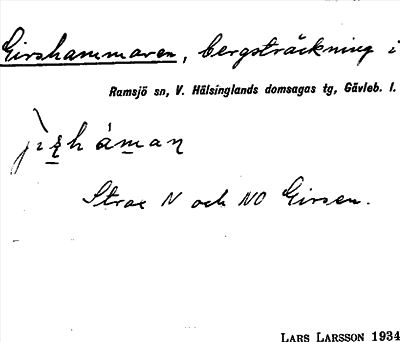 Girshammaren, bergsträckning i
Ramsjö sn, V. Hälsinglands domsagas tg, Gävleb. l.
Strax N och NO Girsen.
LARS LARSSON 1934